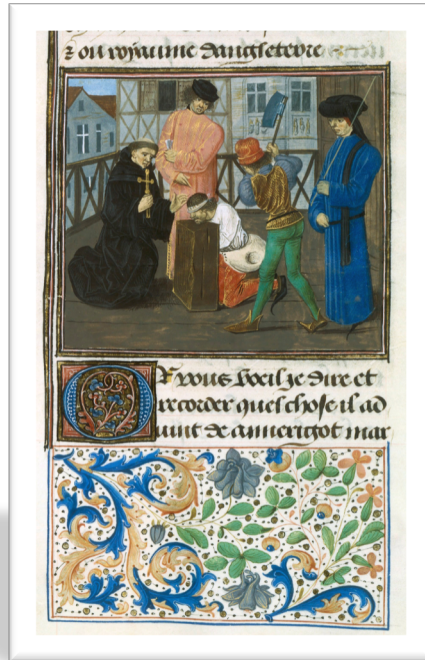 ⁊ ou royaume dangleterre
Or vous vueil je dire et
recorder quel chose il ad
uint de aimerigot mar